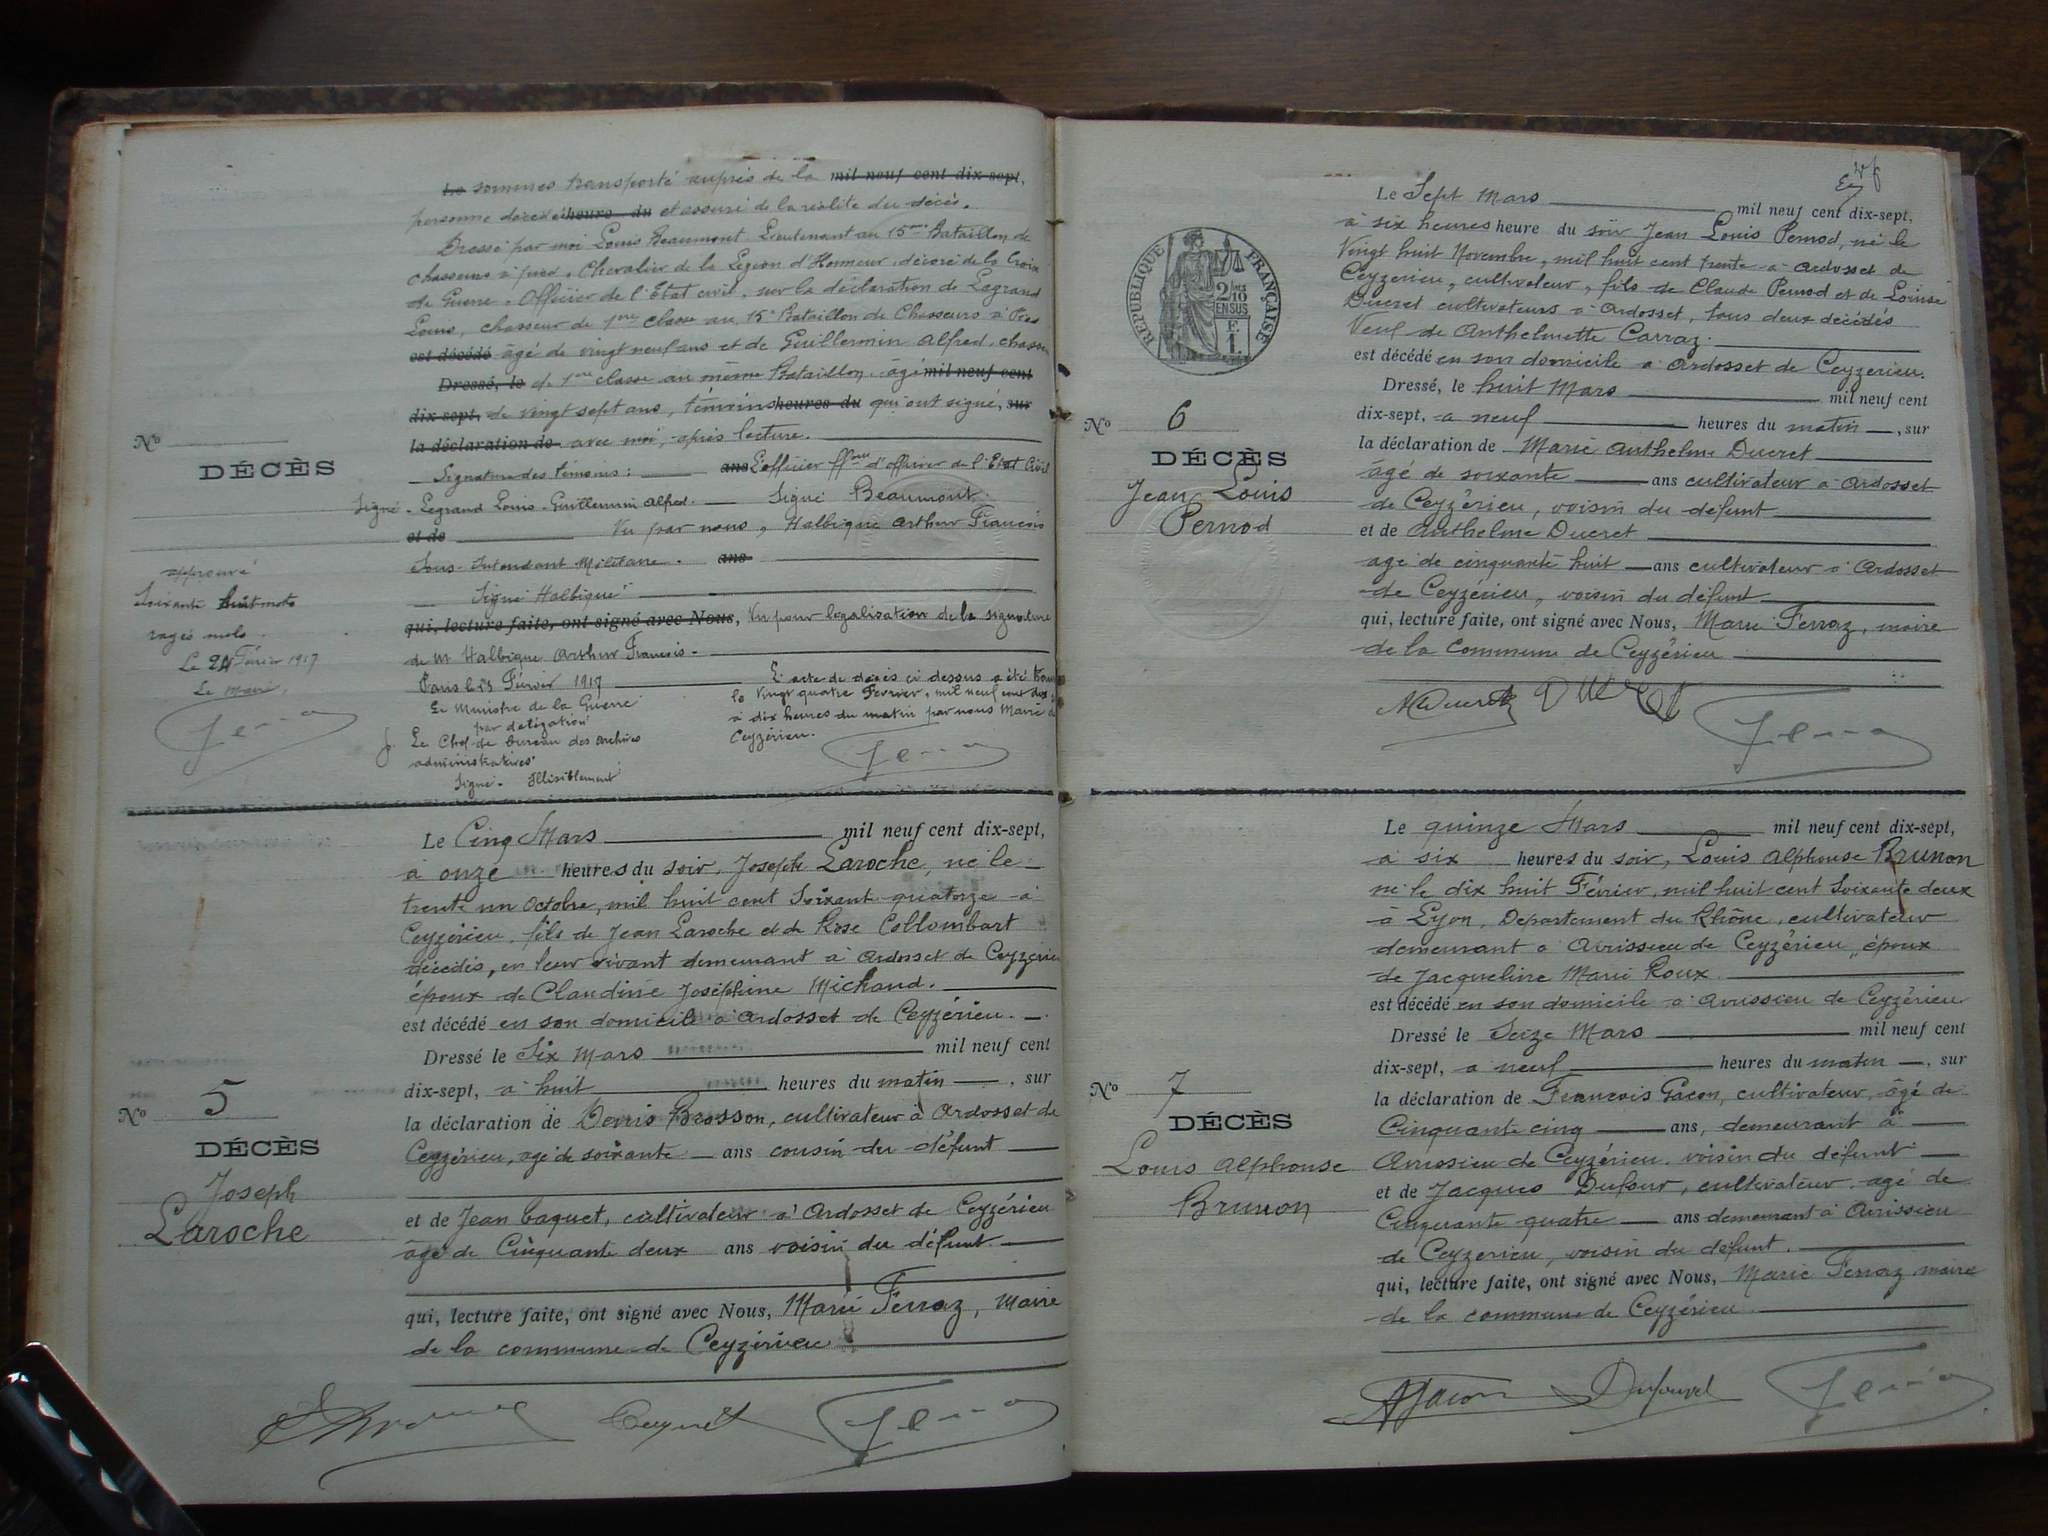 Le sommes transporté auprès de la mil neuf cent dix-sept,
personne décédée heure du et assuré de la réalité du décès.
Dressé par moi Louis Beaumont Lieutenant au 15eme Bataillon de
chasseurs à pied, Chevalier de la Légion d'Honneur, décoré de la Croix
de Guerre, Officier de l'Etat civil, sur la déclaration de Legrand
Louis, chasseur de 1ere classe au 15e Bataillon de Chasseurs à Pied
est décédé âgé de vingt neuf ans et de Guillermin Alfred, chasseur
Dressé, le de 1ere classe au même Bataillon, âgé mil neuf cent
dix-sept, de vingt sept ans, témoins heures du qui ont signé, sur
la déclaration de avec moi, après lecture.
Signature des témoins : ans L'officier ffons d'officier de l'Etat Civil
Signé - Legrand Louis - Guillermin Alfred. Signé Beaumont.
et de Vu par nous, Halbique Arthur François
Sous-Intendant Militaire. ans
Signé "Halbique"
qui, lecture faite, ont signé avec Nous, Vu pour légalisation de la signature
de Mr Halbique Arthur François -
Paris le 23 Février 1917
Le Ministre de la Guerre
par délégation
Le Chef de bureau des archives
administratives
Signé - Illisiblement
L'acte de décès ci dessus a été
le vingt quatre Février, mil neuf cent dix
à dix heures du matin par nous Maire de
Ceyzérieu.
No
DÉCÈS
approuvé
Soixante huit mots
rayés nuls.
Le 24 Février 1917
Le Maire,
Ferraz
Le Cinq Mars mil neuf cent dix-sept,
à onze heures du soir, Joseph Laroche, né le
trente un Octobre, mil huit cent Soixant quatorze à
Ceyzérieu, fils de Jean Laroche et de Rose Collombart
décédés, en leur vivant demeurant à Ardosset de Ceyzérieu
époux de Claudine Joséphine Michaud.
est décédé en son domicile à Ardosset de Ceyzérieu.
Dressé le Six Mars mil neuf cent
dix-sept, à huit heures du matin, sur
la déclaration de Denis Brosson, cultivateur à Ardosset de
Ceyzérieu, agé de soixante ans cousin du défunt
et de Jean Caquet, cultivateur à Ardosset de Ceyzérieu
âgé de Cinquante deux ans voisin du défunt.
qui, lecture faite, ont signé avec Nous, Marie Ferraz, Maire
de la commune de Ceyzérieu
No 5
DÉCÈS
Joseph
Laroche
Ferraz
Le Sept Mars mil neuf cent dix-sept,
à six heures heure du soir Jean Louis Pernod, né le
Vingt huit Novembre, mil huit cent trente à Ardosset de
Ceyzérieu, cultivateur, fils de Claude Pernod et de Louise
Ducret cultivateurs à Ardosset, tous deux décédés
Veuf de Anthelmette Carraz.
est décédé en son domicile à Ardosset de Ceyzerieu.
Dressé, le huit Mars mil neuf cent
dix-sept, à neuf heures du matin, sur
la déclaration de Marie Anthelme Ducret
âgé de soixante ans cultivateur à Ardosset
de Ceyzérieu, voisin du défunt
et de Anthelme Ducret
agé de cinquante huit ans cultivateur à Ardosset
de Ceyzérieu, voisin du défunt
qui, lecture faite, ont signé avec Nous, Marie Ferraz, maire
de la Commune de Ceyzérieu
RÉPUBLIQUE FRANÇAISE
2/10
EN SUS
F.
1.
No 6
DÉCÈS
Jean Louis
Pernod
MDucret Ducret Ferraz
Le quinze Mars mil neuf cent dix-sept,
à six heures du soir, Louis Alphonse Brunon
né le dix huit Février, mil huit cent Soixante deux
à Lyon, Département du Rhône, cultivateur
demeurant à Avrissieu de Ceyzérieu, époux
de Jacqueline Marie Roux.
est décédé en son domicile à Avrissieu de Ceyzérieu
Dressé le Seize Mars mil neuf cent
dix-sept, à neuf heures du matin, sur
la déclaration de François Gacon, cultivateur, âgé de
Cinquante cinq ans, demeurant à
Avrissieu de Ceyzérieu, voisin du défunt
et de Jacques Dufour, cultivateur, agé de
Cinquante quatre ans demeurant à Avrissieu
de Ceyzerieu, voisin du défunt.
qui, lecture faite, ont signé avec Nous, Marie Ferraz maire
de la commune de Ceyzérieu
No 7
DÉCÈS
Louis Alphonse
Brunon
Gacon Dufour Ferraz